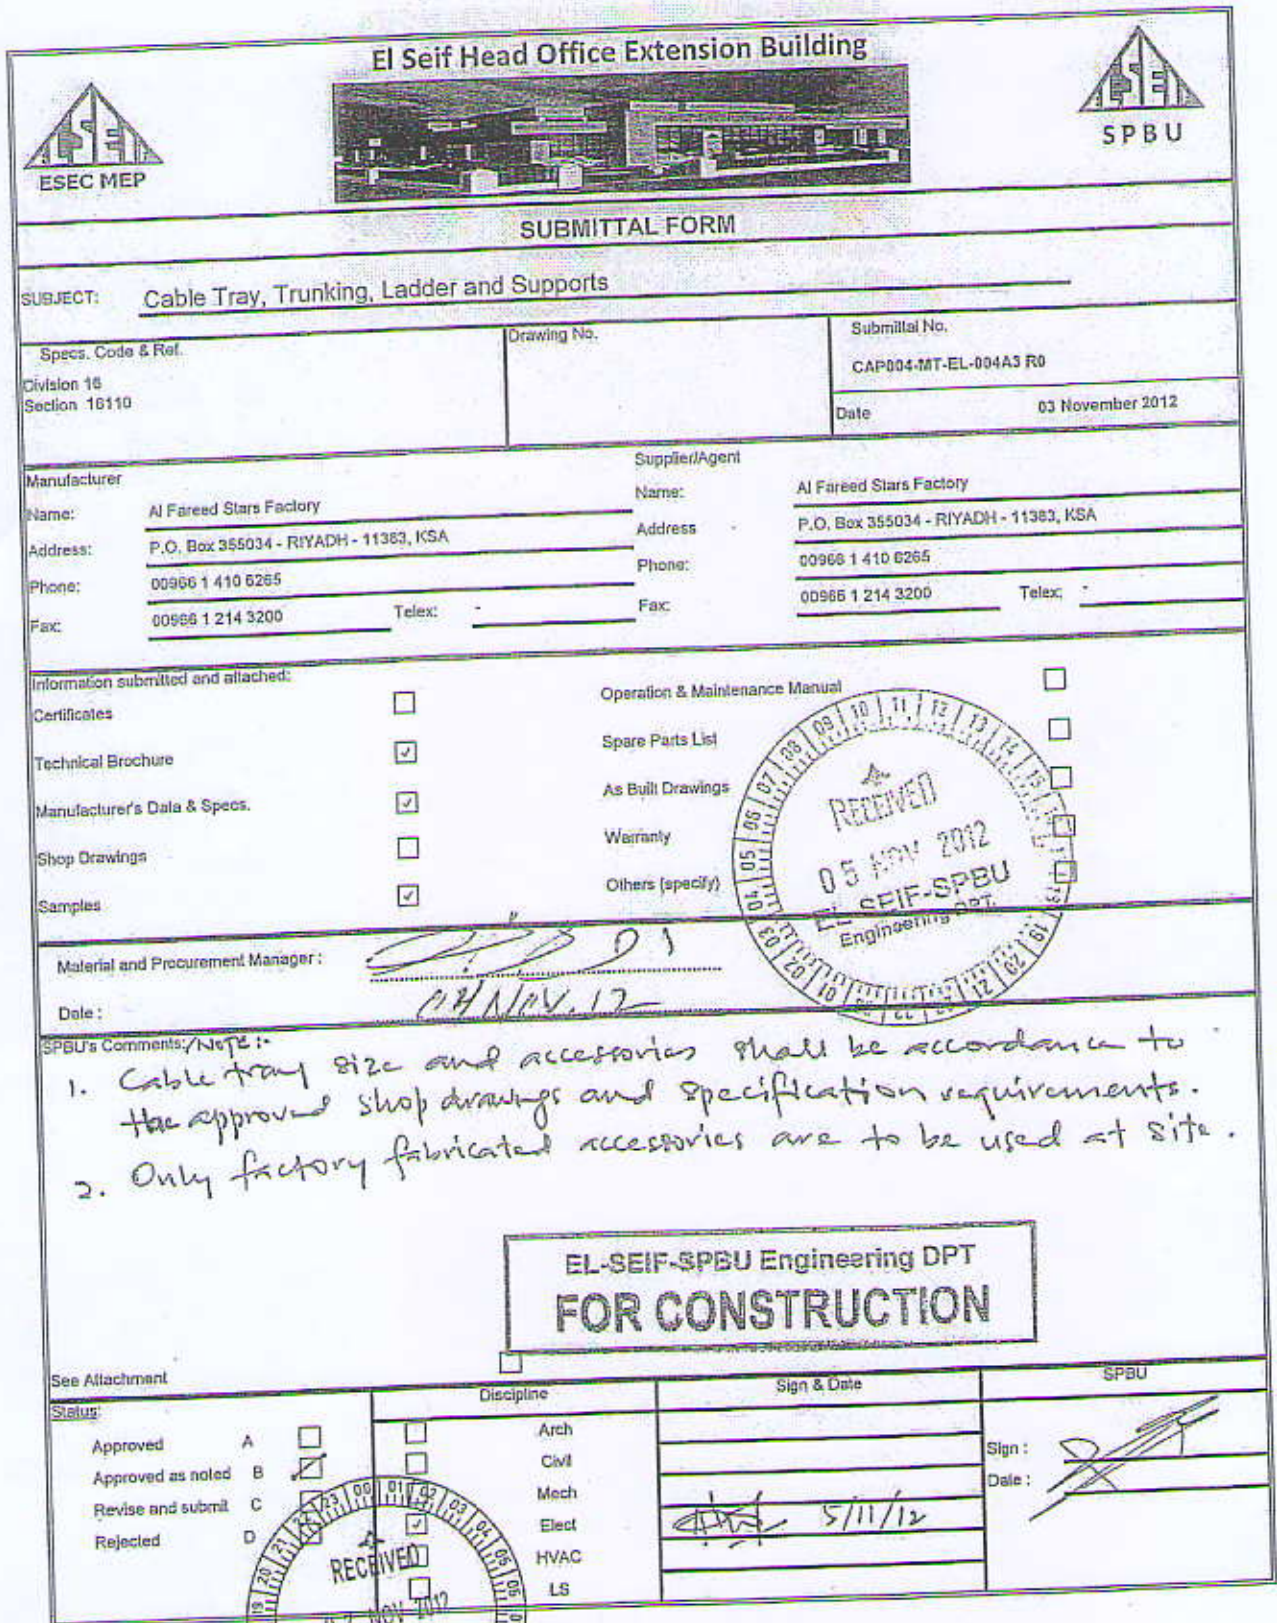 El Seif Head Office Extension Building
ESEC MEP
SPBU
SUBMITTAL FORM
SUBJECT: Cable Tray, Trunking, Ladder and Supports
Specs. Code & Ref.
Division 16
Section 16110
Drawing No.
Submittal No.
CAP004-MT-EL-004A3 R0
Date 03 November 2012
Manufacturer
Name: Al Fareed Stars Factory
Address: P.O. Box 355034 - RIYADH - 11383, KSA
Phone: 00966 1 410 6265
Fax: 00966 1 214 3200 Telex: -
Supplier/Agent
Name: Al Fareed Stars Factory
Address - P.O. Box 355034 - RIYADH - 11383, KSA
Phone: 00966 1 410 6265
Fax: 00966 1 214 3200 Telex: -
Information submitted and attached:
Certificates
Technical Brochure
Manufacturer's Data & Specs.
Shop Drawings
Samples
Operation & Maintenance Manual
Spare Parts List
As Built Drawings
Warranty
Others (specify)
RECEIVED
05 NOV 2012
EL SEIF-SPBU
Engineering DPT.
Material and Procurement Manager :
Date : NOV. 12
SPBU's Comments:/NOTE :-
1. Cable tray size and accessories shall be accordance to
the approved shop drawings and specification requirements.
2. Only factory fabricated accessories are to be used at site.
EL-SEIF-SPBU Engineering DPT
FOR CONSTRUCTION
See Attachment
Status:
Approved A
Approved as noted B
Revise and submit C
Rejected D
Discipline
Arch
Civil
Mech
Elect
HVAC
LS
Sign & Date
5/11/12
SPBU
Sign :
Date :
RECEIVED
NOV 2012